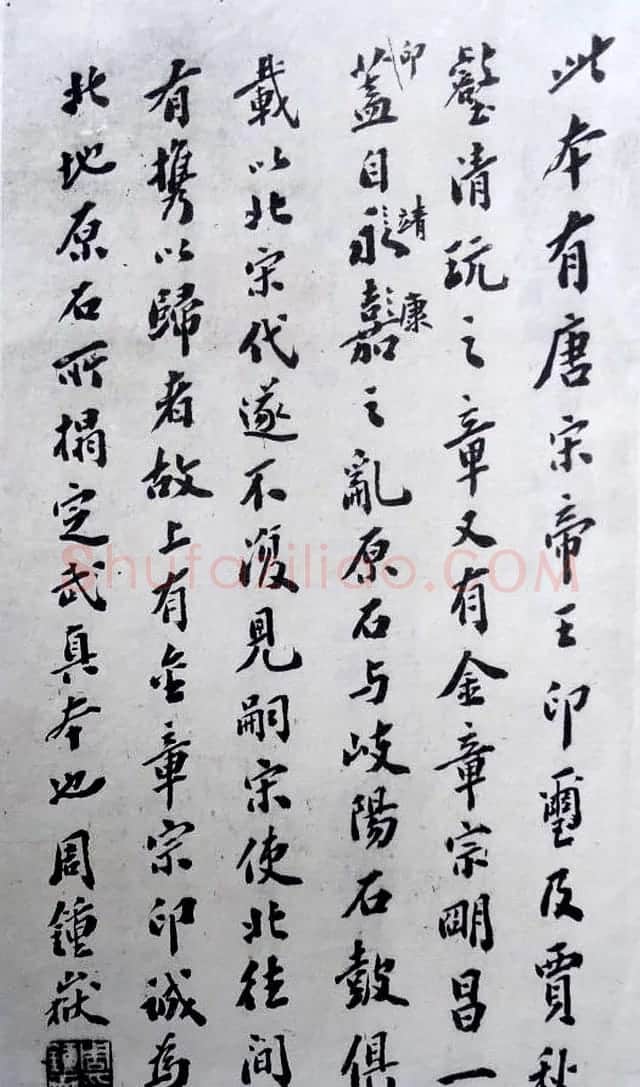 此本有唐宋帝王印璽及賈秋
壑清玩之章又有金章宗明昌一
印
蓋自永嘉之亂原石与岐陽石鼓俱
靖康
載以北宋代遂不復見嗣宋使北往間
有携以歸者故上有金章宗印誠為
北地原石所搨定武真本也周鍾嶽